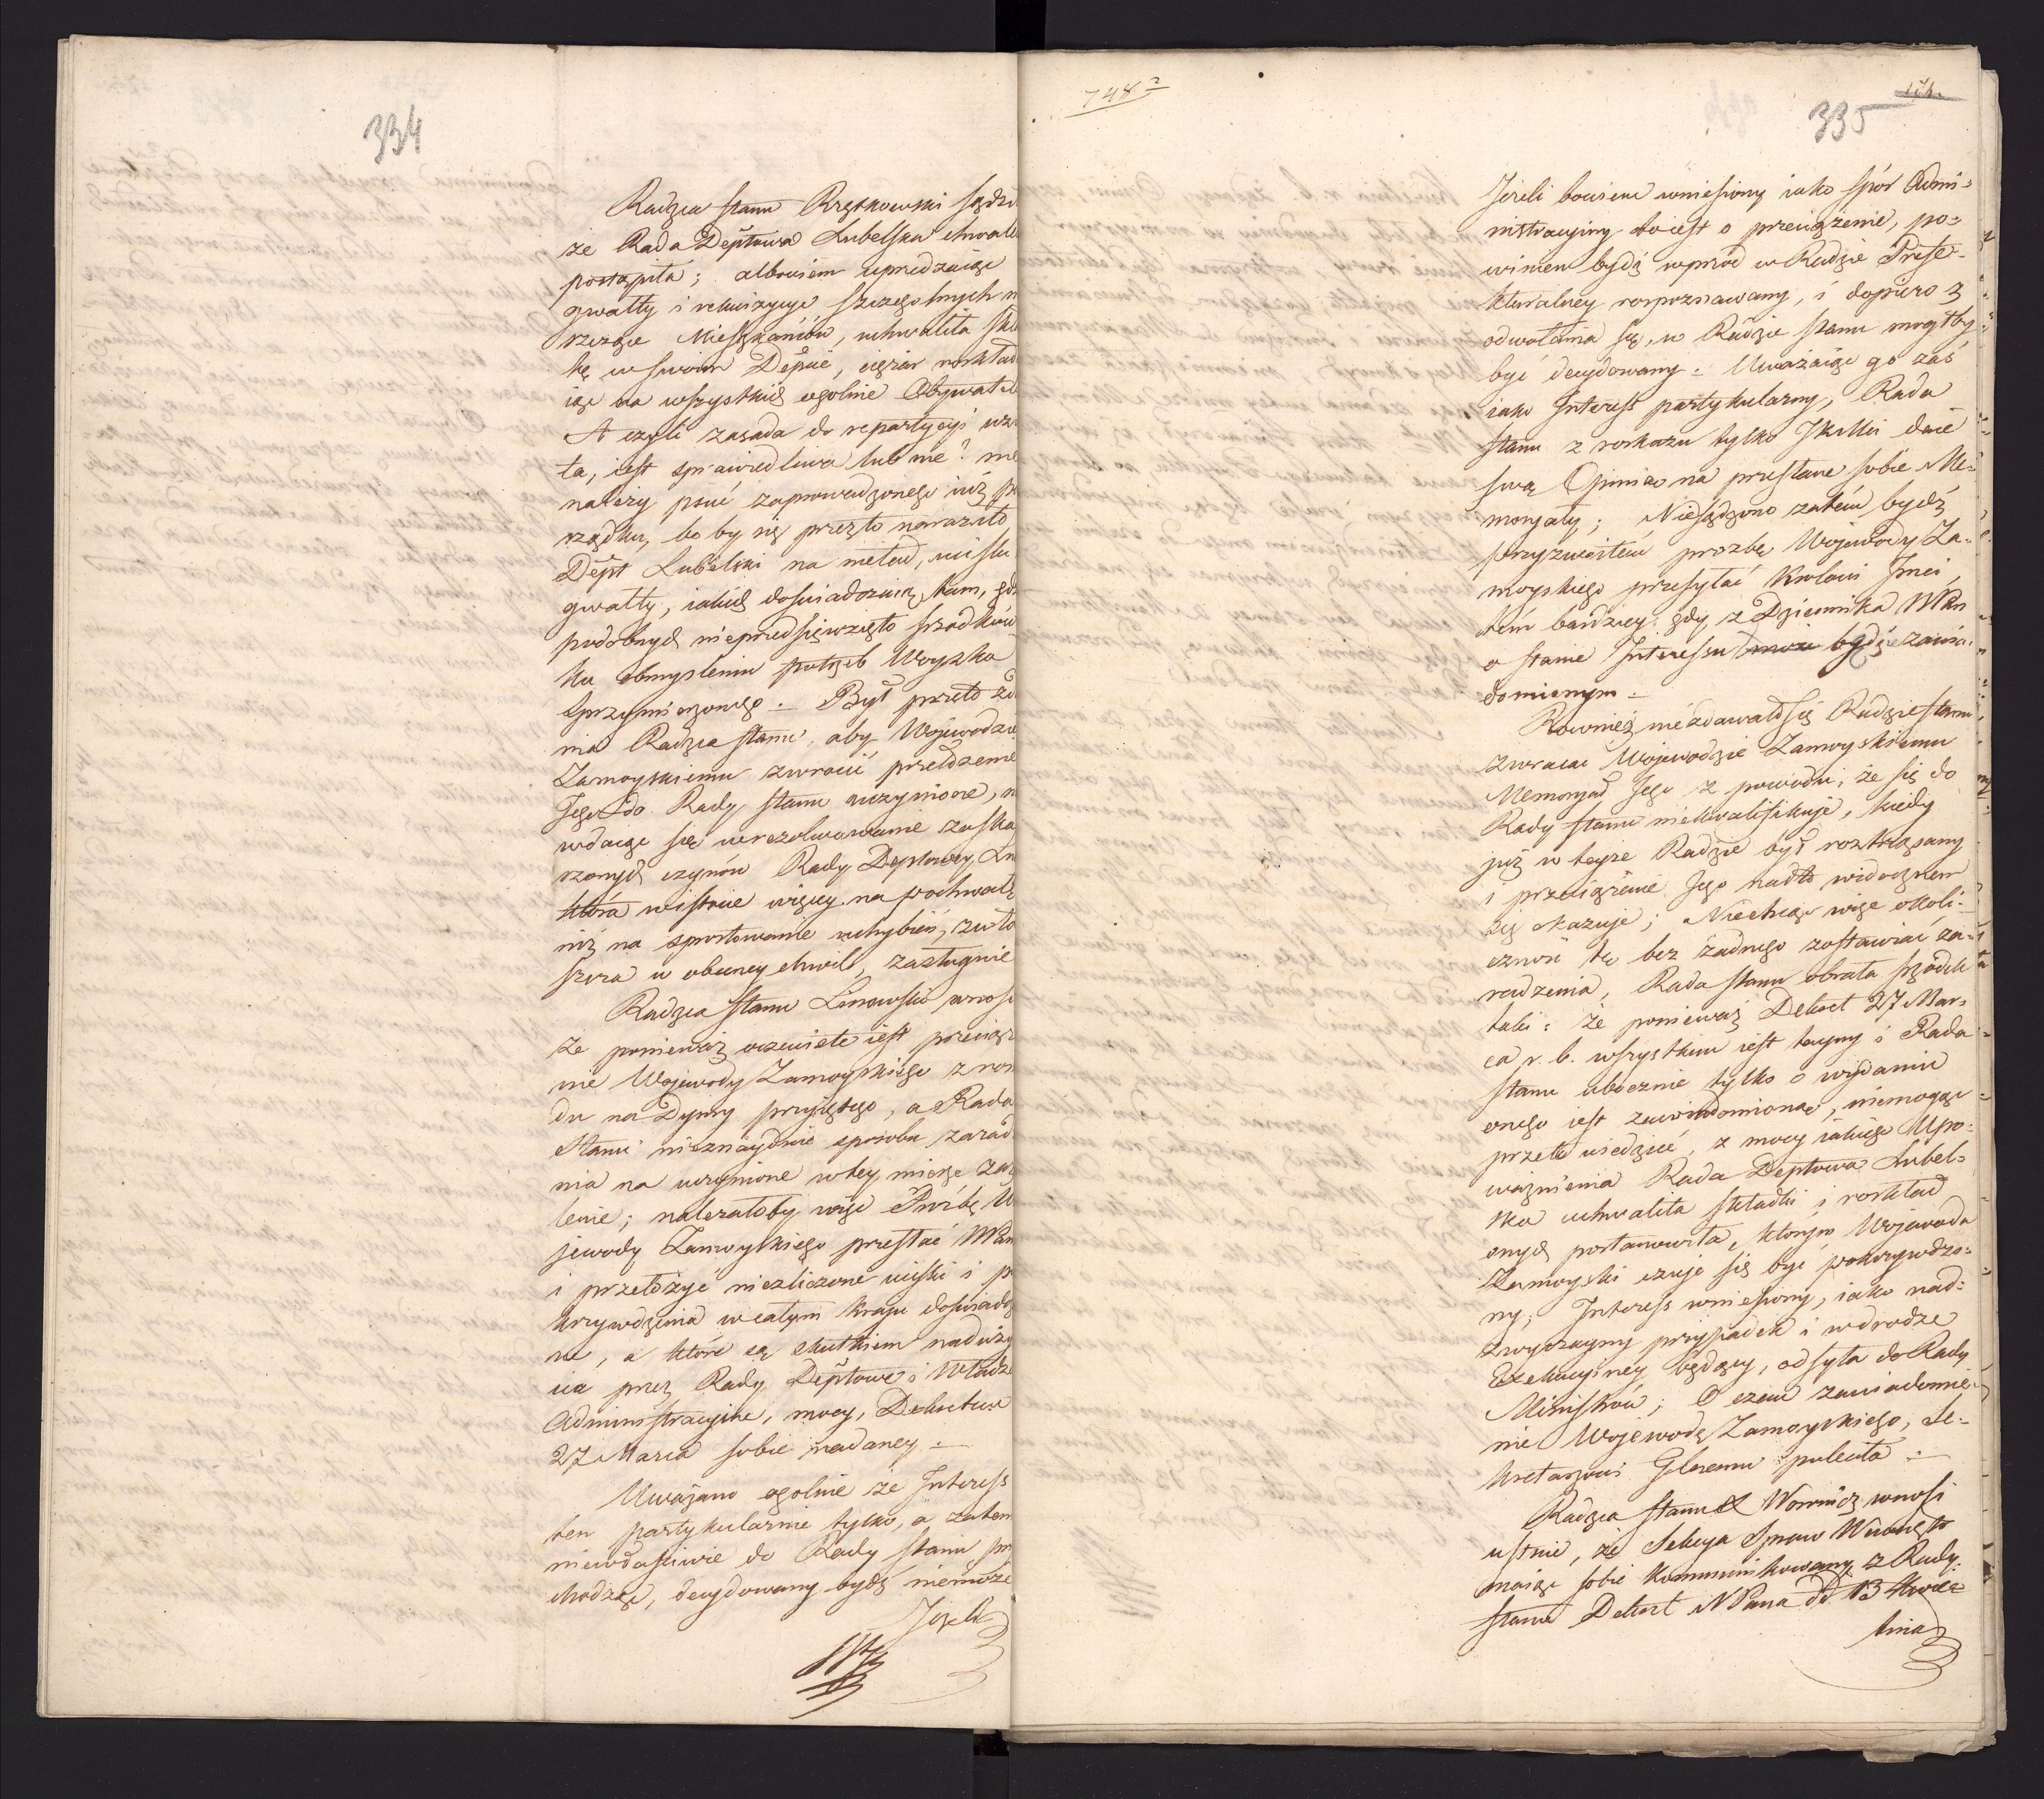 334
Radzca stanu Rzętkowski sądzi
że Rada Deptowa Lubelska chwale
postąpiła; albowiem uprzedzaiąc
gwałty i rekwizycye szczegolnych n
rzecze Mieszkańców, uchwaliła skła
kę w swoim Depcie, ciężar rozkład
iąc na wszystkich ogolnie Obywatel
A czyli zasada do repartycyi wzi
ta, iest sprawiedliwa lub nie? nie
należy psuć zaprowadzonego iuż po
rządku, bo by się przezto naraziło
Dept Lubelski na nieład, ucisk i
gwałty, iakich doświadczaią tam, gdz
podobnych nieprzedsięwzięto srodków
ku obmysleniu potrzeb Woyska
sprzymierzonego. — Był przeto zda
nia Radzca stanu, aby Wojewodzie
Zamoyskiemu zwrocić przełożenie
Jego do Rady stanu uczynione, n
wdaiąc się w rozolwowanie zaska
rzonych czynów Rady Deptowey Lu
która w istocie więcey na pochwałę
niż na sprostowanie uchybień, zwła
szcza w obecney chwili, zasługuie
Radzca stanu Linowski wnosi
że ponieważ oczewiste iest przeciąże
nie Wojewody Zamoyskiego z roz
du na Dymy przyiętego, a Rada
Stanu nieznayduie sposobu zarad
nia na uczynione w tey mierze żą
lenie; należałoby więc Prośbę W
jewody Zamoyskiego przesłać NPan
i przełożyć niezliczone uciski i po
krzywdzenia w całym kraju doświadcz
ne, a które są skutkiem naduży
cia przez Rady Deptowe i Władze
Administracyine, mocy, Dekretem
27 Marca sobie nadaney. —
Uważano ogolnie że Interess
ten partykularnie tylko, a zatem
niewłaściwie do Rady stanu prz
chodząc, decydowany bydź niemoże
Jeżeli
748
335
Jeżeli bowiem wniesiony iako spór Admi-
nistracyiny to iest o przeciążenie, po-
winien bydź wprzód w Radzie Prefe-
kturalney rozpoznawany, i dopiero z
odwołania się, w Radzie stanu mogłby
być decydowany: Uważaiąc go zaś
iako Interess partykularny, Rada
stanu z rozkazu tylko JKMci daie
swą Opinią na przesłane sobie Me-
moryały; Niesądzono zatém bydź
przyzwoitem prozbę Wojewody Za-
moyskiego przesyłać Krolowi Jmci,
tém bardziey gdy z Dziennika NPan
o stanie Interessu może bydź zawia-
domionym —
Rownież niezdawało się Radzie stanu
zwracać Wojewodzie Zamoyskiemu
Memoryał Jego z powodu; że się do
Rady stanu niekwalifikuje, kiedy
już w teyże Radzie był roztrząsany
i przeciążenie Jego nadto widocznem
się okazuje; Niechcąc więc okoli-
czność tę bez żadnego zostawiać za-
radzenia, Rada stanu obrała srodek
taki: że ponieważ Dekret 27 Mar-
ca r. b. wszystkim iest tayny i Rada
stanu ubocznie tylko o wydaniu
onego iest zawiadomioną, niemogąc
przeto wiedzieć, z mocy iakiego Upo-
ważnienia Rada Deptowa Lubel-
ska uchwaliła składki i rozkład
onych postanowiła, którym Wojewoda
Zamoyski czuje się być pokrzywdzo-
ny; Interess wniesiony, iako nad-
zwyczayny przypadek i w drodze
Exekucyiney będący, odsyła do Rady
Ministrów; O czem zawiadomie-
nie Wojewodę Zamoyskiego, Se-
kretarzowi Glnemu poleciła —
Radzca stanu Woronicz wnosi
ustnie, że Sekcya Spraw Wewnęt:
maiąc sobie kommunikowany z Rady
stanu Dekret NPana dd 13 Kwie-
tnia